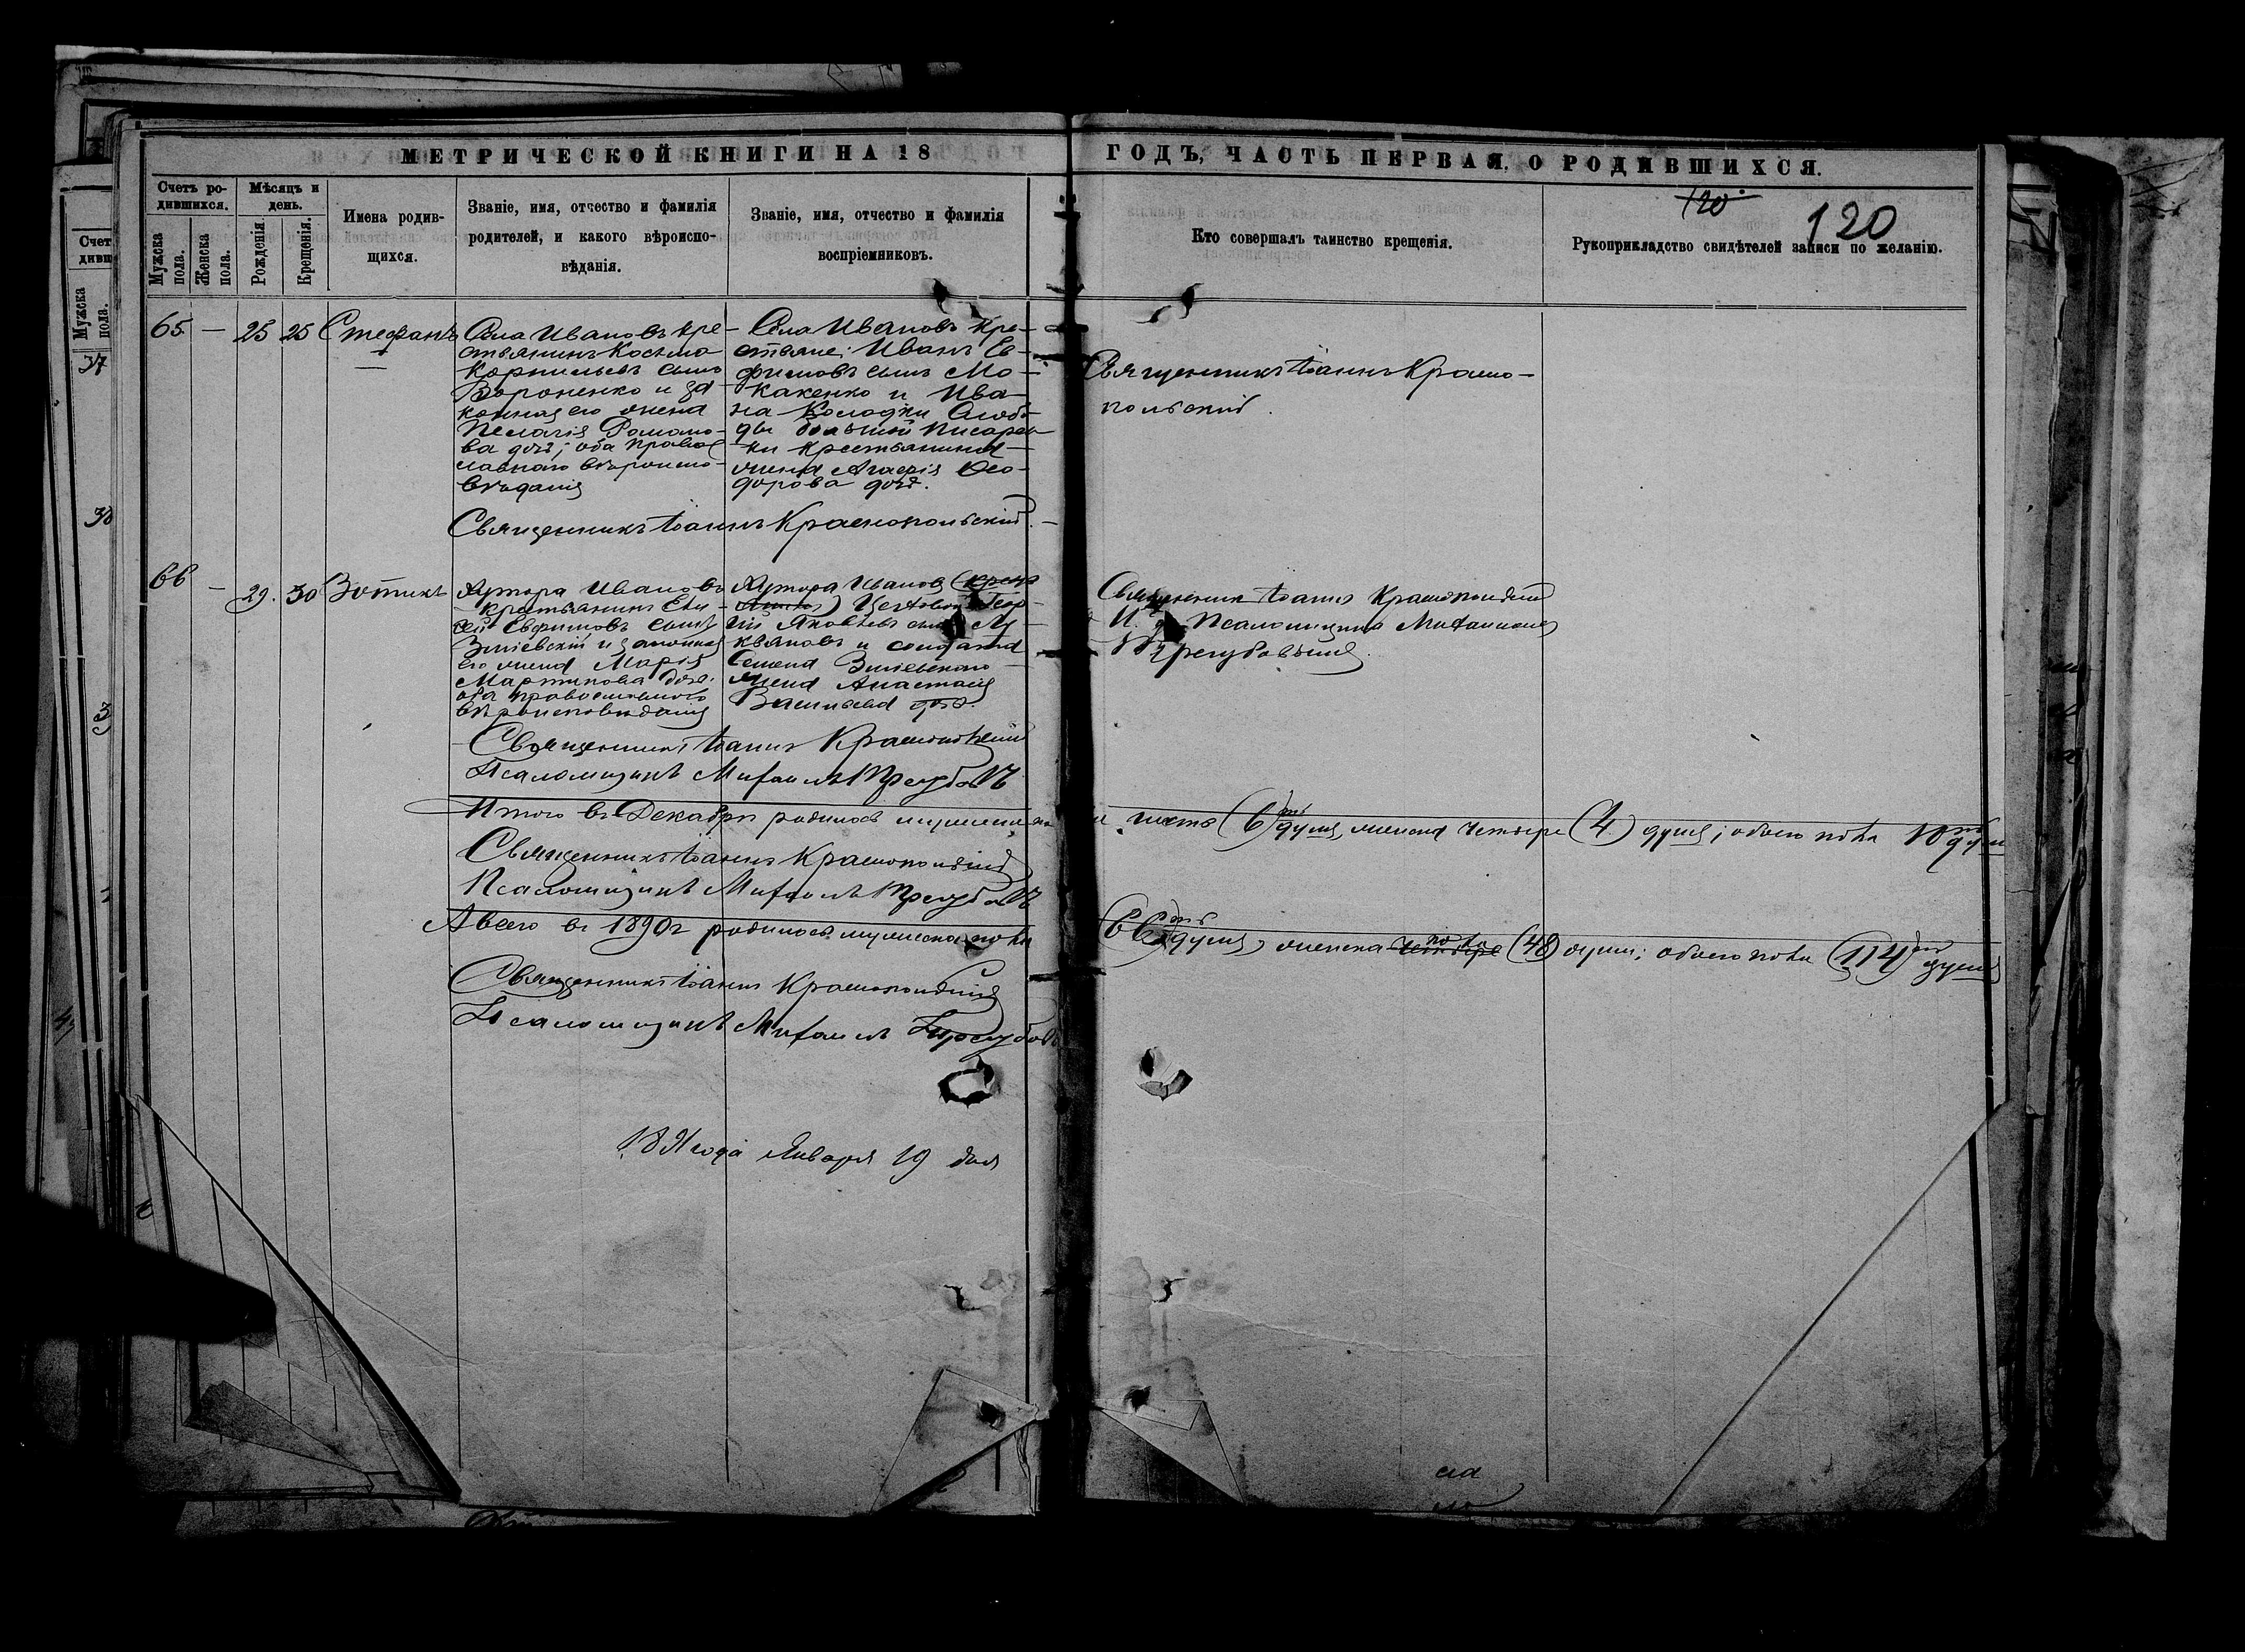 МЕТРИЧЕСКОЙ КНИГИ НА 18
ГОДЪ, ЧАСТЬ ПЕРВАЯ, О РОДИВШИХСЯ.
120
120
Счетъ ро-
дившихся.
Мѣсяцъ и
день.
Мужска
пола.
Женска
пола.
Рожденія.
Крещенія.
Имена родив-
шихся.
Званіе, имя, отчество и фамилія
родителей, и какого вѣроиспо-
вѣданія.
Званіе, имя, отчество и фамилія
воспріемниковъ.
Кто совершалъ таинство крещенія.
Рукоприкладство свидѣтелей записи по желанію.
65 — 25 25 Стефанъ
Села Ивановъ кре-
стьянинъ Косьма
Корнильевъ сынъ
Вороненко и за-
конная его жена
Пелагія Романо-
ва дочь; оба право-
славнаго вѣроиспо-
вѣданія
Села Ивановъ кре-
стьяне: Иванъ Ев-
фимовъ сынъ Мо-
какенко и Ива-
на Колодки Слобо-
ды большой Писарев-
ки крестьянина
жена Агафія Ѳео-
дорова дочь.
Священникъ Іоаннъ Красно-
польскій.
Священникъ Іоаннъ Краснопольскій.
66 — 29. 30 Зотикъ
Хутора Ивановъ
крестьянинъ Ели-
сей Евфимовъ сынъ
Зміевскій и законная
его жена Марія
Мартинова дочь.
оба православнаго
вѣроисповѣданія
Хутора Иванов
Геор-
гій Яковлевъ сынъ Лу-
кьяновъ и солдата
Семена Зміевскаго
жена Анастасія
Васильева дочь.
Священникъ Іоаннъ Краснопольскій
И. д. Псаломщика Михаилъ
Священникъ Іоаннъ Краснопольскій
Псаломщикъ Михаилъ
Итого въ Декабрѣ родилось мужеска по
ла шесть (6) душъ, женска четыре (4) душъ; обоего пола 10 душъ
Священникъ Іоаннъ Краснопольскій
Псаломщикъ Михаилъ
А всего въ 1890г родилось мужеска пола
66 душъ, женска четыре пола (48) душъ; обоего пола (114) душъ
Священникъ Іоаннъ Краснопольскій
Псаломщикъ Михаилъ
1891 года Января 19 дня